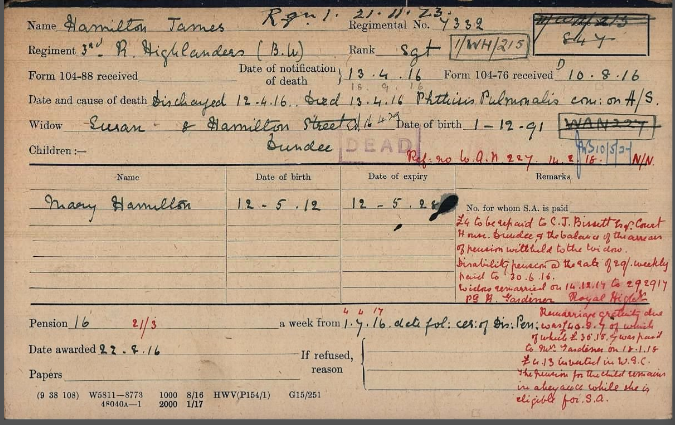 Rqn 1. 21.11.23.
Name Hamilton James Regimental No. 7332
847
Regiment 3rd R. Highlanders (B.W) Rank Sgt 1/WH/215
Form 104-88 received Date of notification of death 13.4.16 Form 104-76 received 10.8.16
18.9.16
Date and cause of death Discharged 12.4.16. Died 13.4.16 Phthisis Pulmonalis con: on A/S.
Widow Susan 8 Hamilton Street Date of birth 1-12-91 WAN227
Children:— Dundee DEAD
Ref. no W.A.N 227. 14.2.18. N/N.
Name Date of birth Date of expiry Remarks
Mary Hamilton 12-5.12 12-5.28
No. for whom S.A. is paid
£4 to be repaid to C.J. Bissett Esq. Court
House. Dundee & the balance of the arrears
of pension withheld to the widow.
Disability pension @ the rate of 20/. weekly
paid to 30.6.16.
Widow remarried on 14.12.17 to 292917
Pte A. Gardener Royal Highrs
4 4 17
Pension 16 21/3 a week from 1.7.16. date fol: ces: of Dis: Pen:
Remarriage gratuity due
was £40.8.9 of which
of which £35.15.9 was paid
to Mrs Gardener on 18.1.18
£4.13 invested in W.S.C.
The pension for the child remains
in abeyance while she is
eligible for S.A.
Date awarded 22.8.16 If refused, reason
Papers
(9 38 108) W5811—8773 1000 8/16 HWV(P154/1) G15/251
48040A—1 2000 1/17